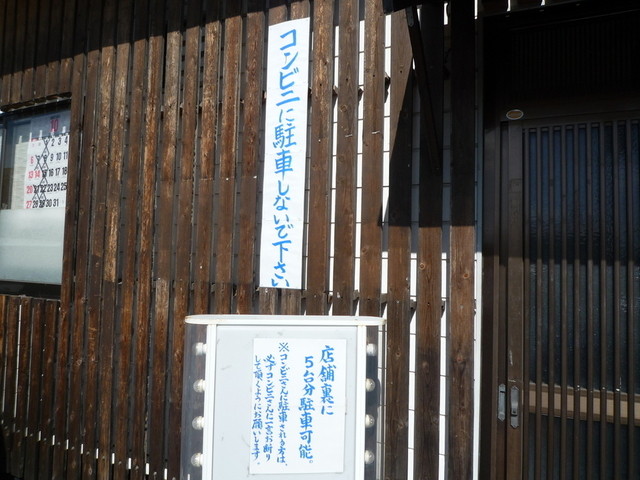 コンビニに駐車しないで下さい
店舗裏に
5台分駐車可能。
※コンビニさんに駐車される方は、
必ずコンビニさんに一言お断り
して頂くようにお願いします。
1 2 3 4
6 7 8 9 10 11
13 14 15 16 17 18
20 21 22 23 24 25
27 28 29 30 31